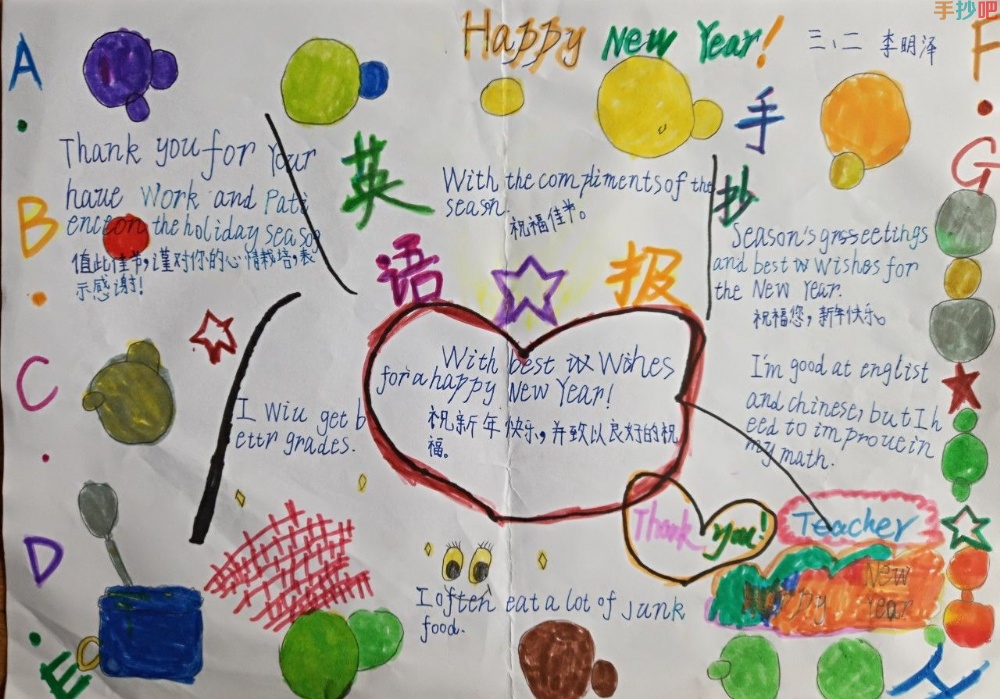 手抄吧
Happy New Year!
三、二 李明泽
A
B
C
D
E
F
G
H
英
语
手
抄
报
Thank you for Your
haue Work and Pati
enceon the holiday Season
值此佳节,谨对你的心情栽培,表
示感谢!
With the compliments of the
seasn.
祝福佳节。
Season's grsseetings
and best w Wishes for
the New Year.
祝福您,新年快乐。
With best wx Wihes
for a happy New Year!
祝新年快乐,并致以良好的祝
福。
I Wiu get b
ettr grades.
I'm good at englist
and chinese, but I h
eed to improuein
my math.
Thank you!
Teacher
Happy New
Year
I often eat a lot of Junk
food.